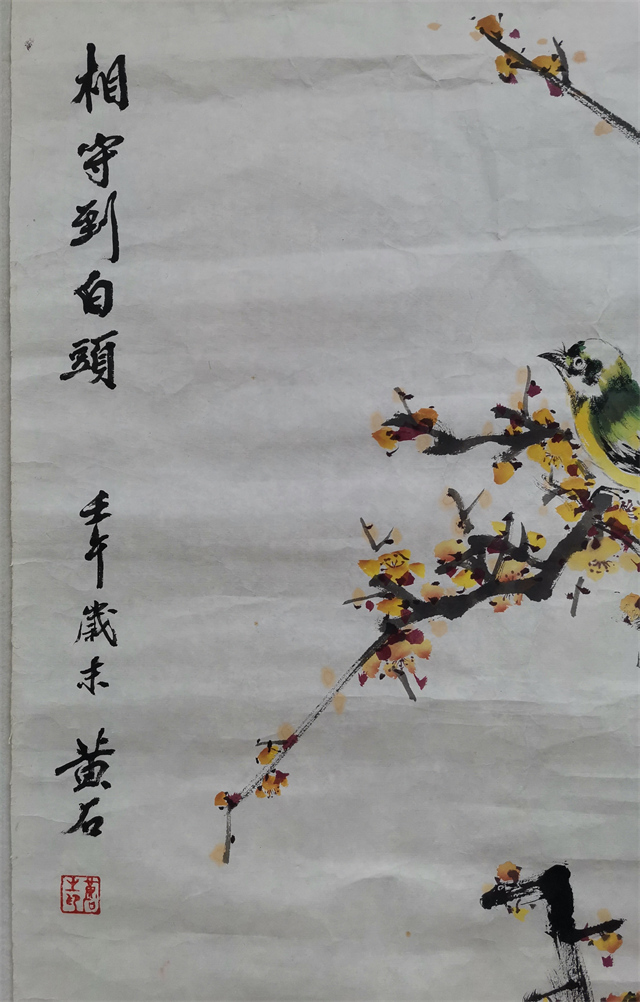 相守到白頭
壬午歲末 黄石